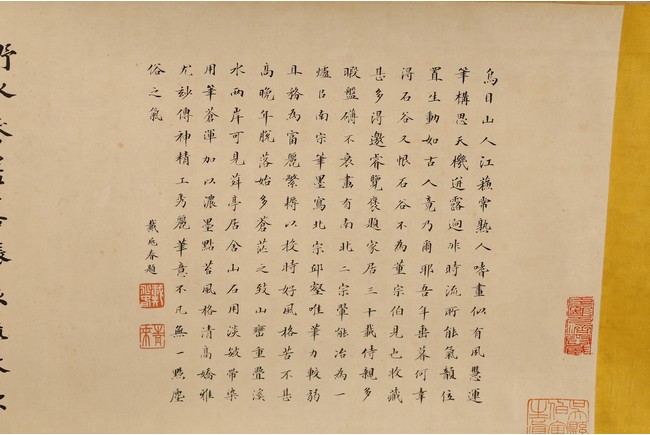 烏目山人江蘇常熟人嗜畫似有夙慧運
筆構思天機迸露迥非時流所能氣韻位
置生動如古人竟乃爾耶吾年垂暮何幸
得石谷又恨石谷不為董宗伯見也收藏
甚多得邀睿覽褒題家居三十載侍親多
暇盤礴不衰畫有南北二宗翬能冶為一
爐以南宗筆墨寫北宗邱壑唯筆力較弱
且務為富麗繁縟以投時好風格苦不甚
高晚年脫落始多蒼茫之致山巒重疊溪
水兩岸可見茅亭居舍山石用淡皴帶染
用筆蒼渾加以濃墨點苔風格清高嬌雅
尤玅傳神精工秀麗筆意不凡無一點塵
俗之氣
戴 春題